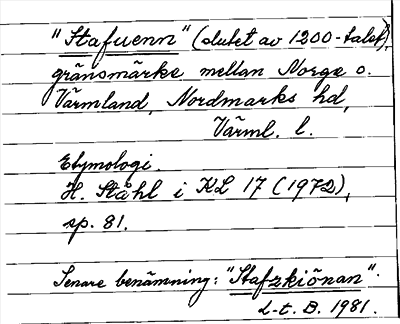 "Stafuenn" (slutet av 1200-talet),
gränsmärke mellan Norge o.
Värmland, Nordmarks hd,
Värml. l.
Etymologi.
H. Ståhl i KL 17 (1972),
sp. 81.
Senare benämning: "Stafzkiönan".
L-t. B. 1981.